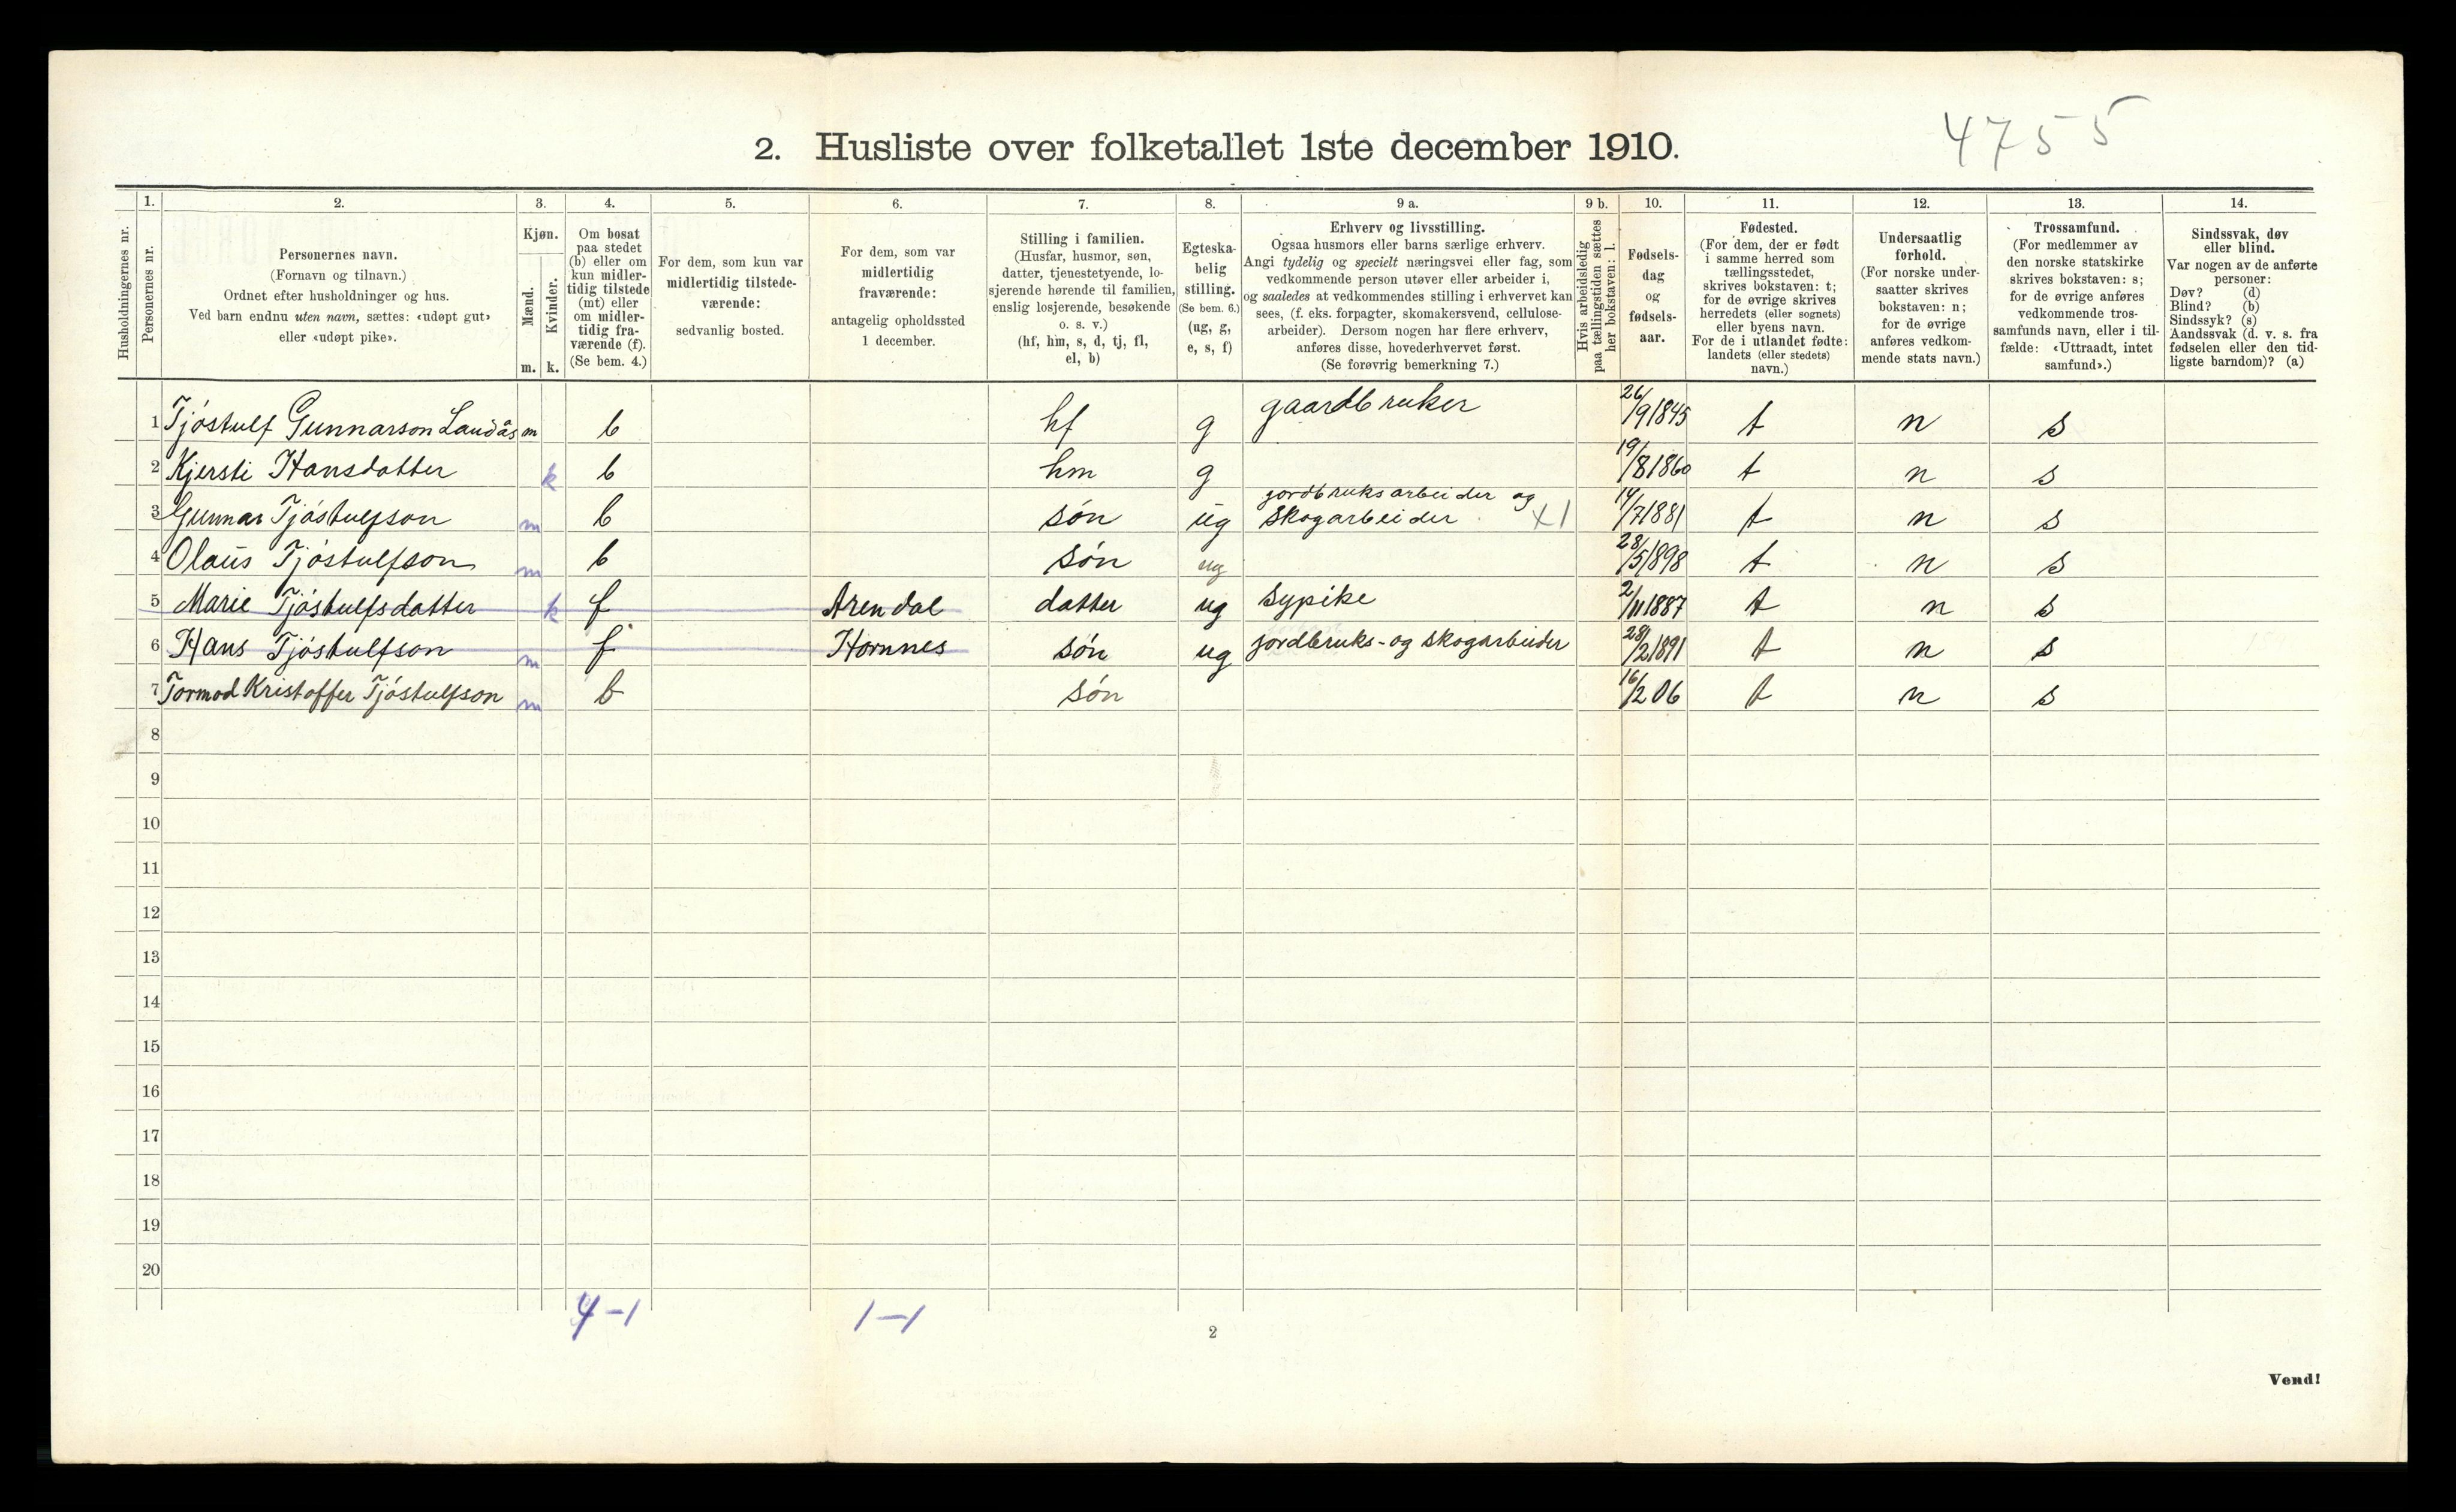 4755
2. Husliste over folketallet 1ste december 1910.
1. 2. 3. 4. 5. 6. 7. 8. 9 a. 9 b. 10. 11. 12. 13. 14.
Husholdningernes nr.
Personernes nr.
Personernes navn.
(Fornavn og tilnavn.)
Ordnet efter husholdninger og hus.
Ved barn endnu uten navn, sættes: «udøpt gut»
eller «udøpt pike».
Kjøn.
Mænd.
Kvinder.
m. k.
Om bosat
paa stedet
(b) eller om
kun midler-
tidig tilstede
(mt) eller
om midler-
tidig fra-
værende (f).
(Se bem. 4.)
For dem, som kun var
midlertidig tilstede-
værende:
sedvanlig bosted.
For dem, som var
midlertidig
fraværende:
antagelig opholdssted
1 december.
Stilling i familien.
(Husfar, husmor, søn,
datter, tjenestetyende, lo-
sjerende hørende til familien,
enslig losjerende, besøkende
o. s. v.)
(hf, hm, s, d, tj, fl,
el, b)
Egteska-
belig
stilling.
(Se bem. 6.)
(ug, g,
e, s, f)
Erhverv og livsstilling.
Ogsaa husmors eller barns særlige erhverv.
Angi tydelig og specielt næringsvei eller fag, som
vedkommende person utøver eller arbeider i,
og saaledes at vedkommendes stilling i erhvervet kan
sees, (f. eks. forpagter, skomakersvend, cellulose-
arbeider). Dersom nogen har flere erhverv,
anføres disse, hovederhvervet først.
(Se forøvrig bemerkning 7.)
Hvis arbeidsledig
paa tællingstiden sættes
her bokstaven: l.
Fødsels-
dag
og
fødsels-
aar.
Fødested.
(For dem, der er født
i samme herred som
tællingsstedet,
skrives bokstaven: t;
for de øvrige skrives
herredets (eller sognets)
eller byens navn.
For de i utlandet fødte:
landets (eller stedets)
navn.)
Undersaatlig
forhold.
(For norske under-
saatter skrives
bokstaven: n;
for de øvrige
anføres vedkom-
mende stats navn.)
Trossamfund.
(For medlemmer av
den norske statskirke
skrives bokstaven: s;
for de øvrige anføres
vedkommende tros-
samfunds navn, eller i til-
fælde: «Uttraadt, intet
samfund».)
Sindssvak, døv
eller blind.
Var nogen av de anførte
personer:
Døv? (d)
Blind? (b)
Sindssyk? (s)
Aandssvak (d. v. s. fra
fødselen eller den tid-
ligste barndom)? (a)
1 Tjóstulf Gunnarson Landås m b hf g gaardbruker 26/9 1845 t n s
2 Kjersti Hansdatter k b hm g 19/8 1860 t n s
3 Gunnar Tjóstulfson m b són ug jordbruksarbeider og skogarbeider x1 14/7 1881 t n s
4 Olaus Tjóstulfson m b són ug 28/5 1898 t n s
5 Marie Tjóstulfsdatter k f Arendal datter ug sypike 2/11 1887 t n s
6 Hans Tjóstulfson m f Hornnes són ug jordbruks- og skogarbeider 28/2 1891 t n s
7 Tormod Kristoffer Tjóstulfson m b són 16/2 06 t n s
8
9
10
11
12
13
14
15
16
17
18
19
20
4-1 1-1
2
Vend!